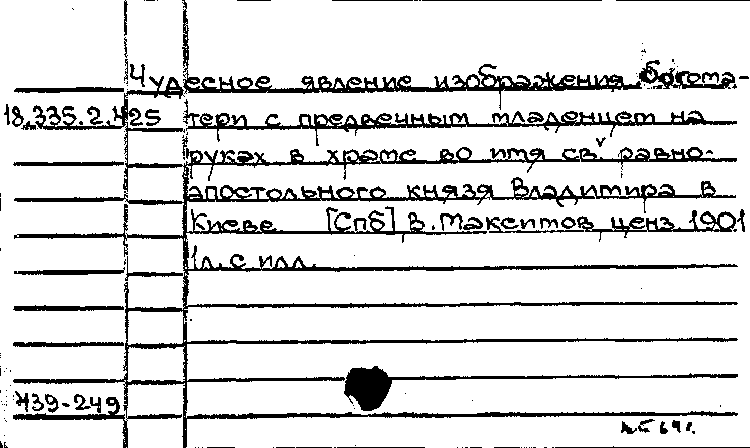 Чудесное явление изображения Богома-
18.335.2.425 тери с предвечным младенцем на
руках в храме во имя св. равно-
апостольного князя Владимира в
Киеве. [Спб] В. Максимов, ценз. 1901
1л. с илл.
Ч39-249